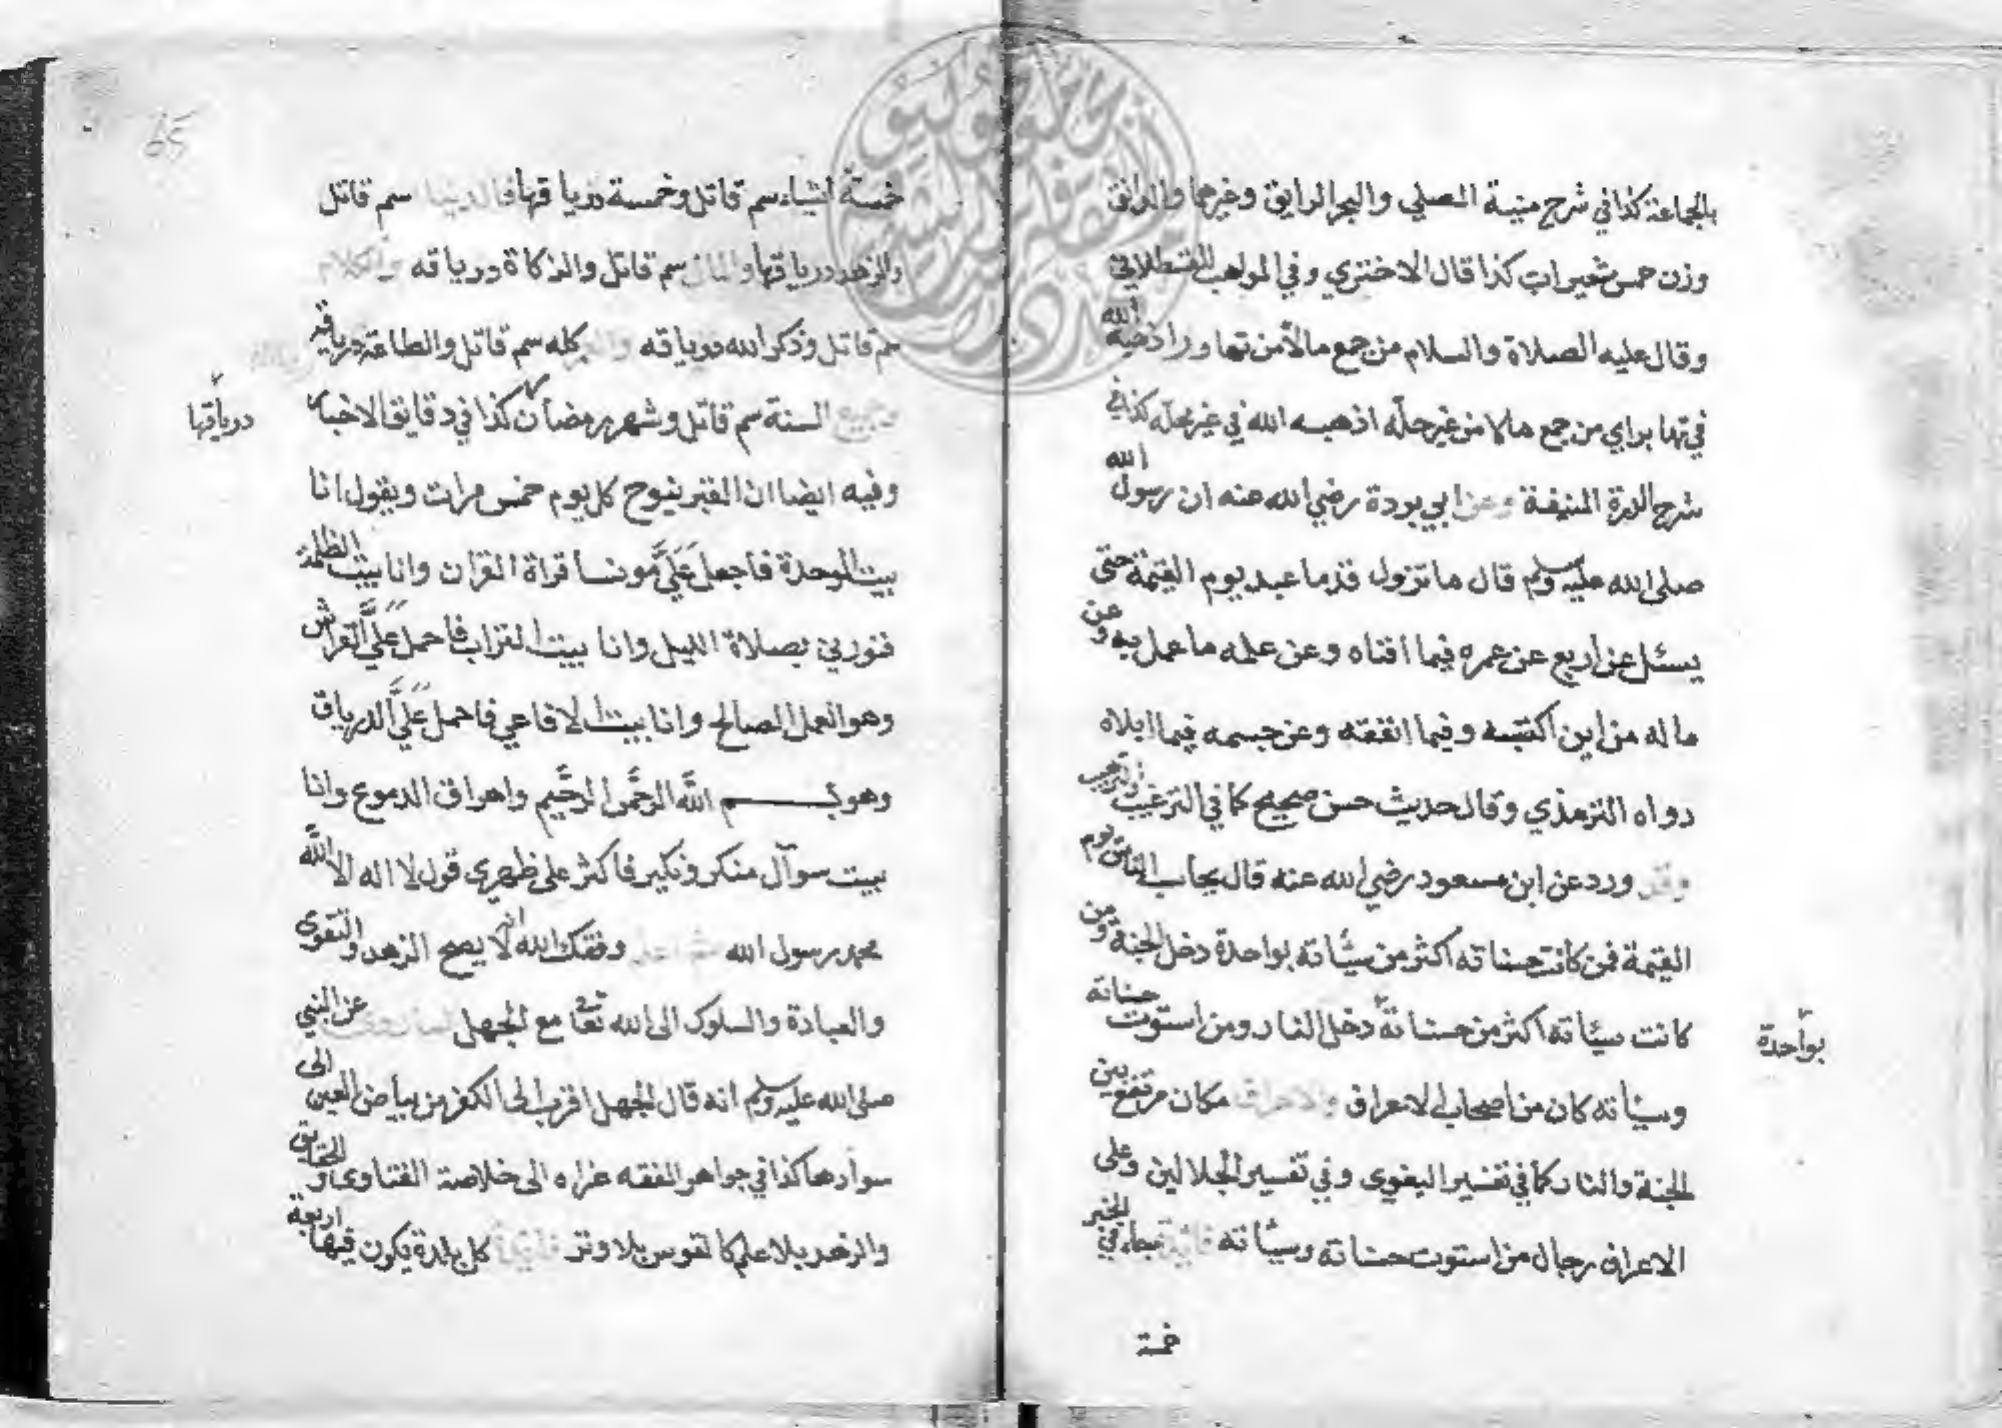 بالجماعة كذا في شرح منية المصلي والبحر الرايق وغيرهما والدانق
وزن خمس شعيرات كذا قال الاختري وفي المواهب القسطلاني
وقال عليه الصلاة والسلام من جمع مالا من تهاور اذهبه الله
في تهابر اي من جمع مالا من غير حله اذهبه الله في غير محله كذا في
شرح الدرة المنيفة وعن ابي بردة رضي الله عنه ان رسول الله
صلى الله عليه وسلم قال ما تزول قدما عبد يوم القيمة حتى
يسئل عن اربع عن عمره فيما افناه وعن علمه ما عمل به وعن
ماله من اين اكتسبه وفيما انفقه وعن جسمه فيما ابلاه
رواه الترمذي وقال حديث حسن صحيح كما في الترغيب والترهيب
وقد ورد عن ابن مسعود رضي الله عنه قال يحاب الناس يوم
القيمة فمن كانت حسناته اكثر من سيئاته بواحدة دخل الجنة ومن
كانت سيئاته اكثر من حسناته دخل النار ومن استوت حسناته
بواحدة
وسيئاته كان من اصحاب الاعراف والاعراف مكان مرتفع بين
الجنة والنار كما في تفسير البغوي وفي تفسير الجلالين وعلى
الاعراف رجال من استوت حسناته وسيئاته جاء في الخبر
خمسة
65
خمسة اشياء سم قاتل وخمسة درياقها فالدنيا سم قاتل
والزهد درياقها والمال سم قاتل والزكاة درياقه والكلام
سم قاتل وذكر الله درياقه كله سم قاتل والطاعة درياقه
وجميع السنة سم قاتل وشهر رمضان كذا في دقايق الاخبار
درياقها
وفيه ايضا ان القبر ينوح كل يوم خمس مرات ويقول انا
بيت الوحدة فاجعل عَلَيَّ مونسا قراة القران وانا بيت الظلمة
فنورني بصلاة الليل وانا بيت التراب فاحمل عَلَيَّ الفراش
وهو العمل الصالح وانا بيت الافاعي فاحمل عَلَيَّ الدرياق
وهو بسم اللَّه الرحمن الرحيم واهراق الدموع وانا
بيت سوآل منكر ونكير فاكثر على ظهري قول لا اله الا اللَّه
محمد رسول الله وفقك الله انه لا يصح الزهد والتقوى
والعبادة والسلوك الى الله تعا مع الجهل لما عن النبي
صلى الله عليه وسلم انه قال الجهل اقرب الى الكفر من بياض العين الى
سوادها كذا في جواهر الفقه عزاه الى خلاصة الفتاوى
والزهد بلا علم كالقوس بلا وتر كل بلدة يكون فيها اربعة